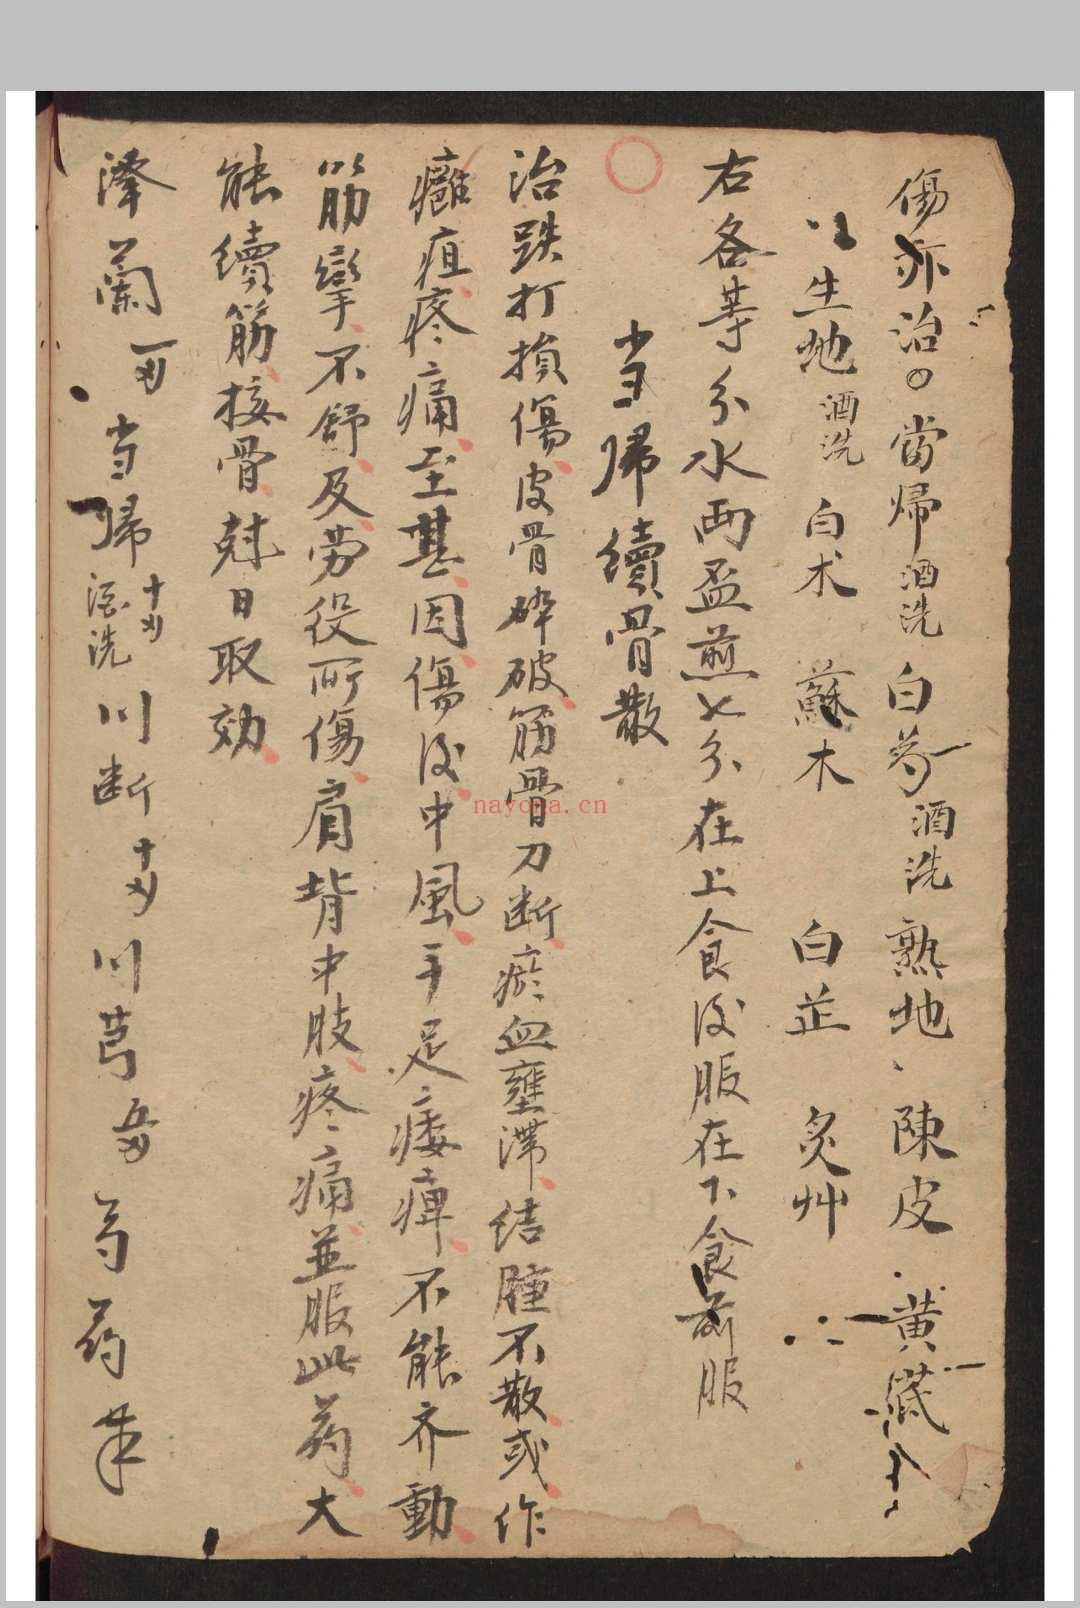 傷亦治。當帰酒洗 白芍酒洗 熟地、陳皮 黄
生地酒洗 白术 蘇木 白芷 炙艸
右各等分水两盃煎七分在上食後服在下食前服
当帰續骨散
治跌打損傷皮骨碎破筋骨刀断瘀血壅滞結腫不散或作
癰疽疼痛至甚因傷後中風手足痿痺不能齐動
筋攣不舒及劳役所傷肩背中肢疼痛並服此药大
能續筋接骨尅日取効
澤蘭 当帰酒洗 川断 川芎 芍药
nayona.cn